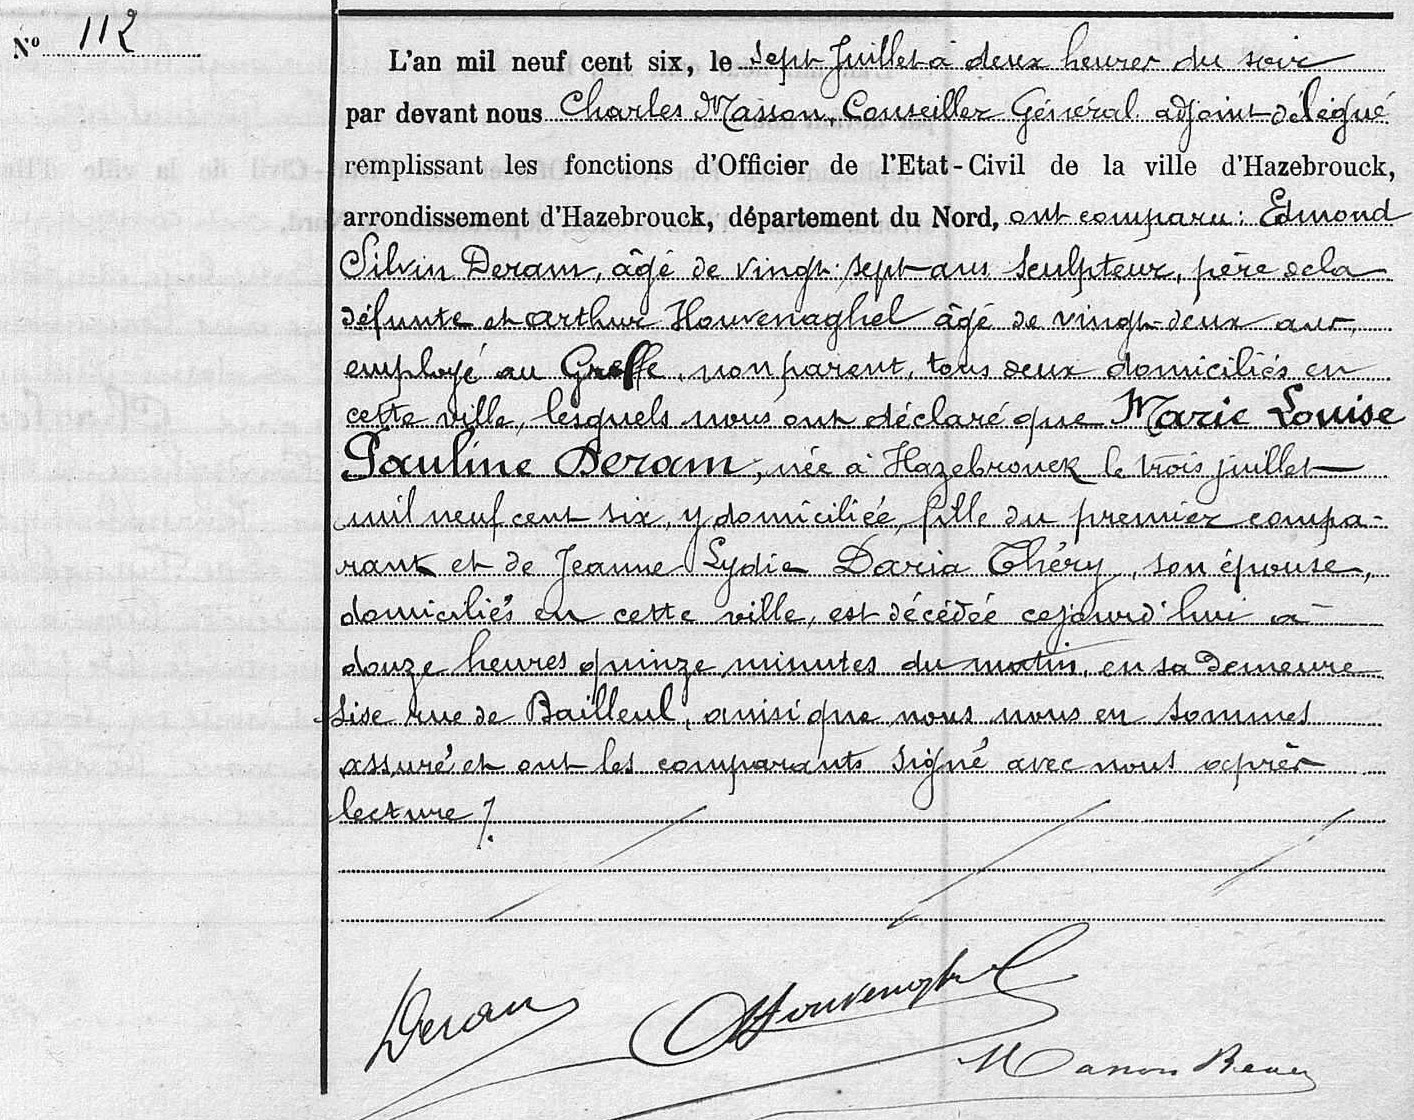 N° 112
L'an mil neuf cent six, le sept Juillet à deux heures du soir
par devant nous Charles Masson, Conseiller Général adjoint délégué
remplissant les fonctions d'Officier de l'Etat-Civil de la ville d'Hazebrouck,
arrondissement d'Hazebrouck, département du Nord, ont comparu : Edmond
Silvin Deram, âgé de vingt-sept ans sculpteur, père de la
défunte et Arthur Houvenaghel âgé de vingt-deux ans,
employé au Greffe, non parent, tous deux domiciliés en
cette ville, lesquels nous ont déclaré que Marie Louise
Pauline Deram, née à Hazebrouck le trois juillet
mil neuf cent six, y domiciliée, fille du premier compa-
rant et de Jeanne Lydie Daria Théry, son épouse,
domiciliés en cette ville, est décédée cejourd'hui à
douze heures quinze minutes du matin, en sa demeure
sise rue de Bailleul, ainsi que nous nous en sommes
assuré et ont les comparants signé avec nous après
lecture /.
Deram Houvenaghel
Masson